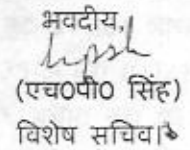 भवदीय,
(एच0पी0 सिंह)
विशेष सचिव।